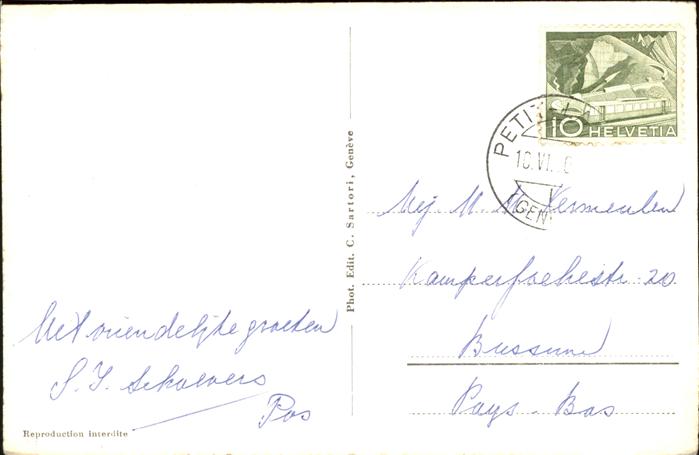 Met vriendelijke groeten
S. J. Schoevers
Pos
Reproduction interdite
Phot. Edit. C. Sartori, Genève
10 HELVETIA
PETIT-
10.VI.
GEN
Mej. M. M. Vermeulen
Kamperfoeliestr. 20
Bussum
Pays-Bas